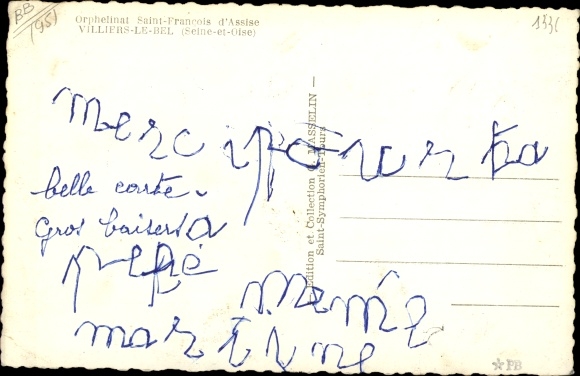 BB
(95)
Orphelinat Saint-François d'Assise
VILLIERS-LE-BEL (Seine-et-Oise)
Merci pour ta
belle carte.
Gros baisers à
pépé mémé
martine
Edition et Collection G. MASSELIN —
Saint-Symphorien-Tours
PB